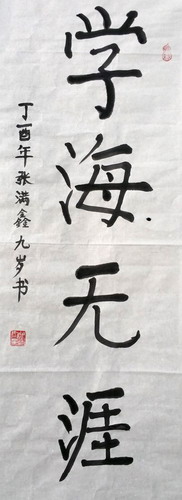 学海无涯
丁酉年张满鑫九岁书